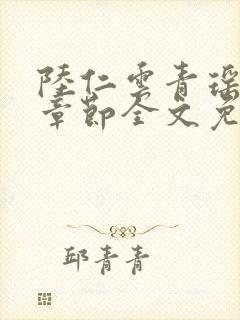 陸仁雲青瑶
章節全文免
邱青青